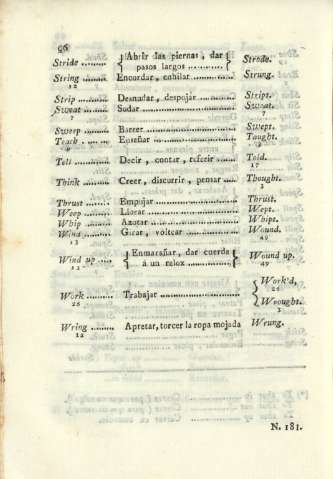 96
Stride ........ { Abrir las piernas, dar pasos largos ........ } Strode.
String ........ Encordar, enhilar ........ Strung.
12
Strip ........ Desnudar, despojar ........ Stript.
Sweat ........ Sudar ........ Sweat.
7 7
Sweep ........ Barrer ........ Swept.
Teach ........ Enseñar ........ Taught.
9 2
Tell ........ Decir, contar, referir ........ Told.
17
Think ........ Creer, discurrir, pensar .... Thought.
2
Thrust ........ Empujar ........ Thrust.
Weep ........ Llorar ........ Wept.
Whip ........ Azotar ........ Whipt.
Wind ........ Girar, voltear ........ Wound.
13 49
Wind up .... { Enmarañar, dar cuerda á un relox ........ } Wound up.
13 49
Work ........ Trabajar ........ { Work'd,
26 26
Wrought.
2
Wring ........ Apretar, torcer la ropa mojada Wrung.
12
N. 181.